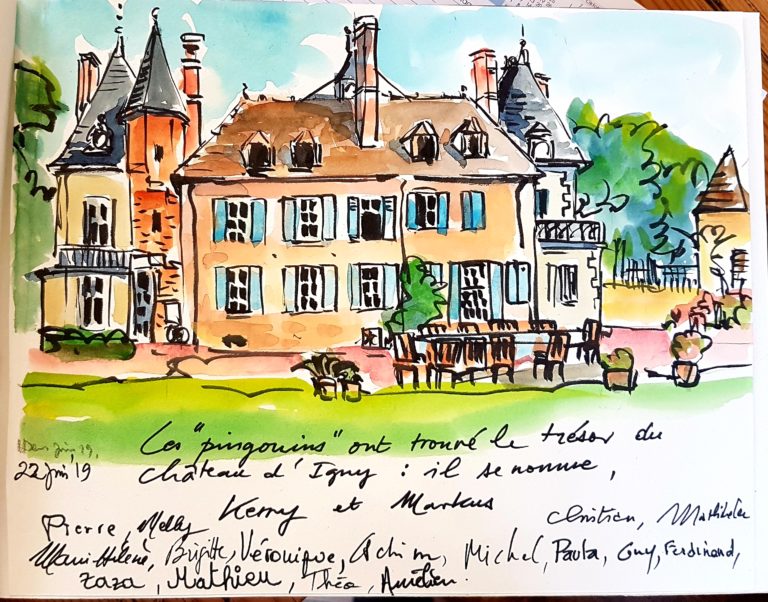 Les "pingouins" ont trouvé le trésor du
22 juin '19 château d'Igny : il se nomme,
Kerry et Markus
Pierre, Melly Christian, Mathilde
Marie-Hélène, Brigitte, Véronique, Achim, Michel, Paula, Guy, Ferdinand,
Zaza, Mathieu, Théo, Aurélien.